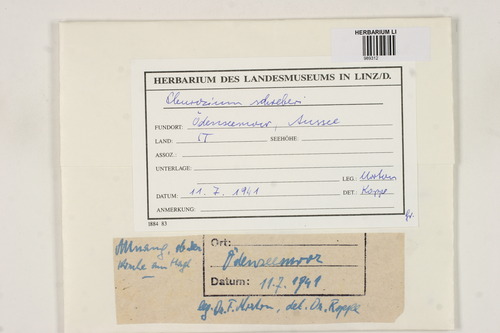 HERBARIUM LI
HERBARIUM DES LANDESMUSEUMS IN LINZ/D.
Pleurozium schreberi
FUNDORT: Ödenseemoor, Aussee
LAND: ST SEEHÖHE:
ASSOZ.:
UNTERLAGE:
LEG.: Morton
DATUM: 11. 7. 1941 DET.: Koppe
ANMERKUNG:
1884 83
Gr.
Ort:
Ödenseemoor
Datum: 11.7.1941
leg. Dr. F. Morton, det. Dr. Koppe